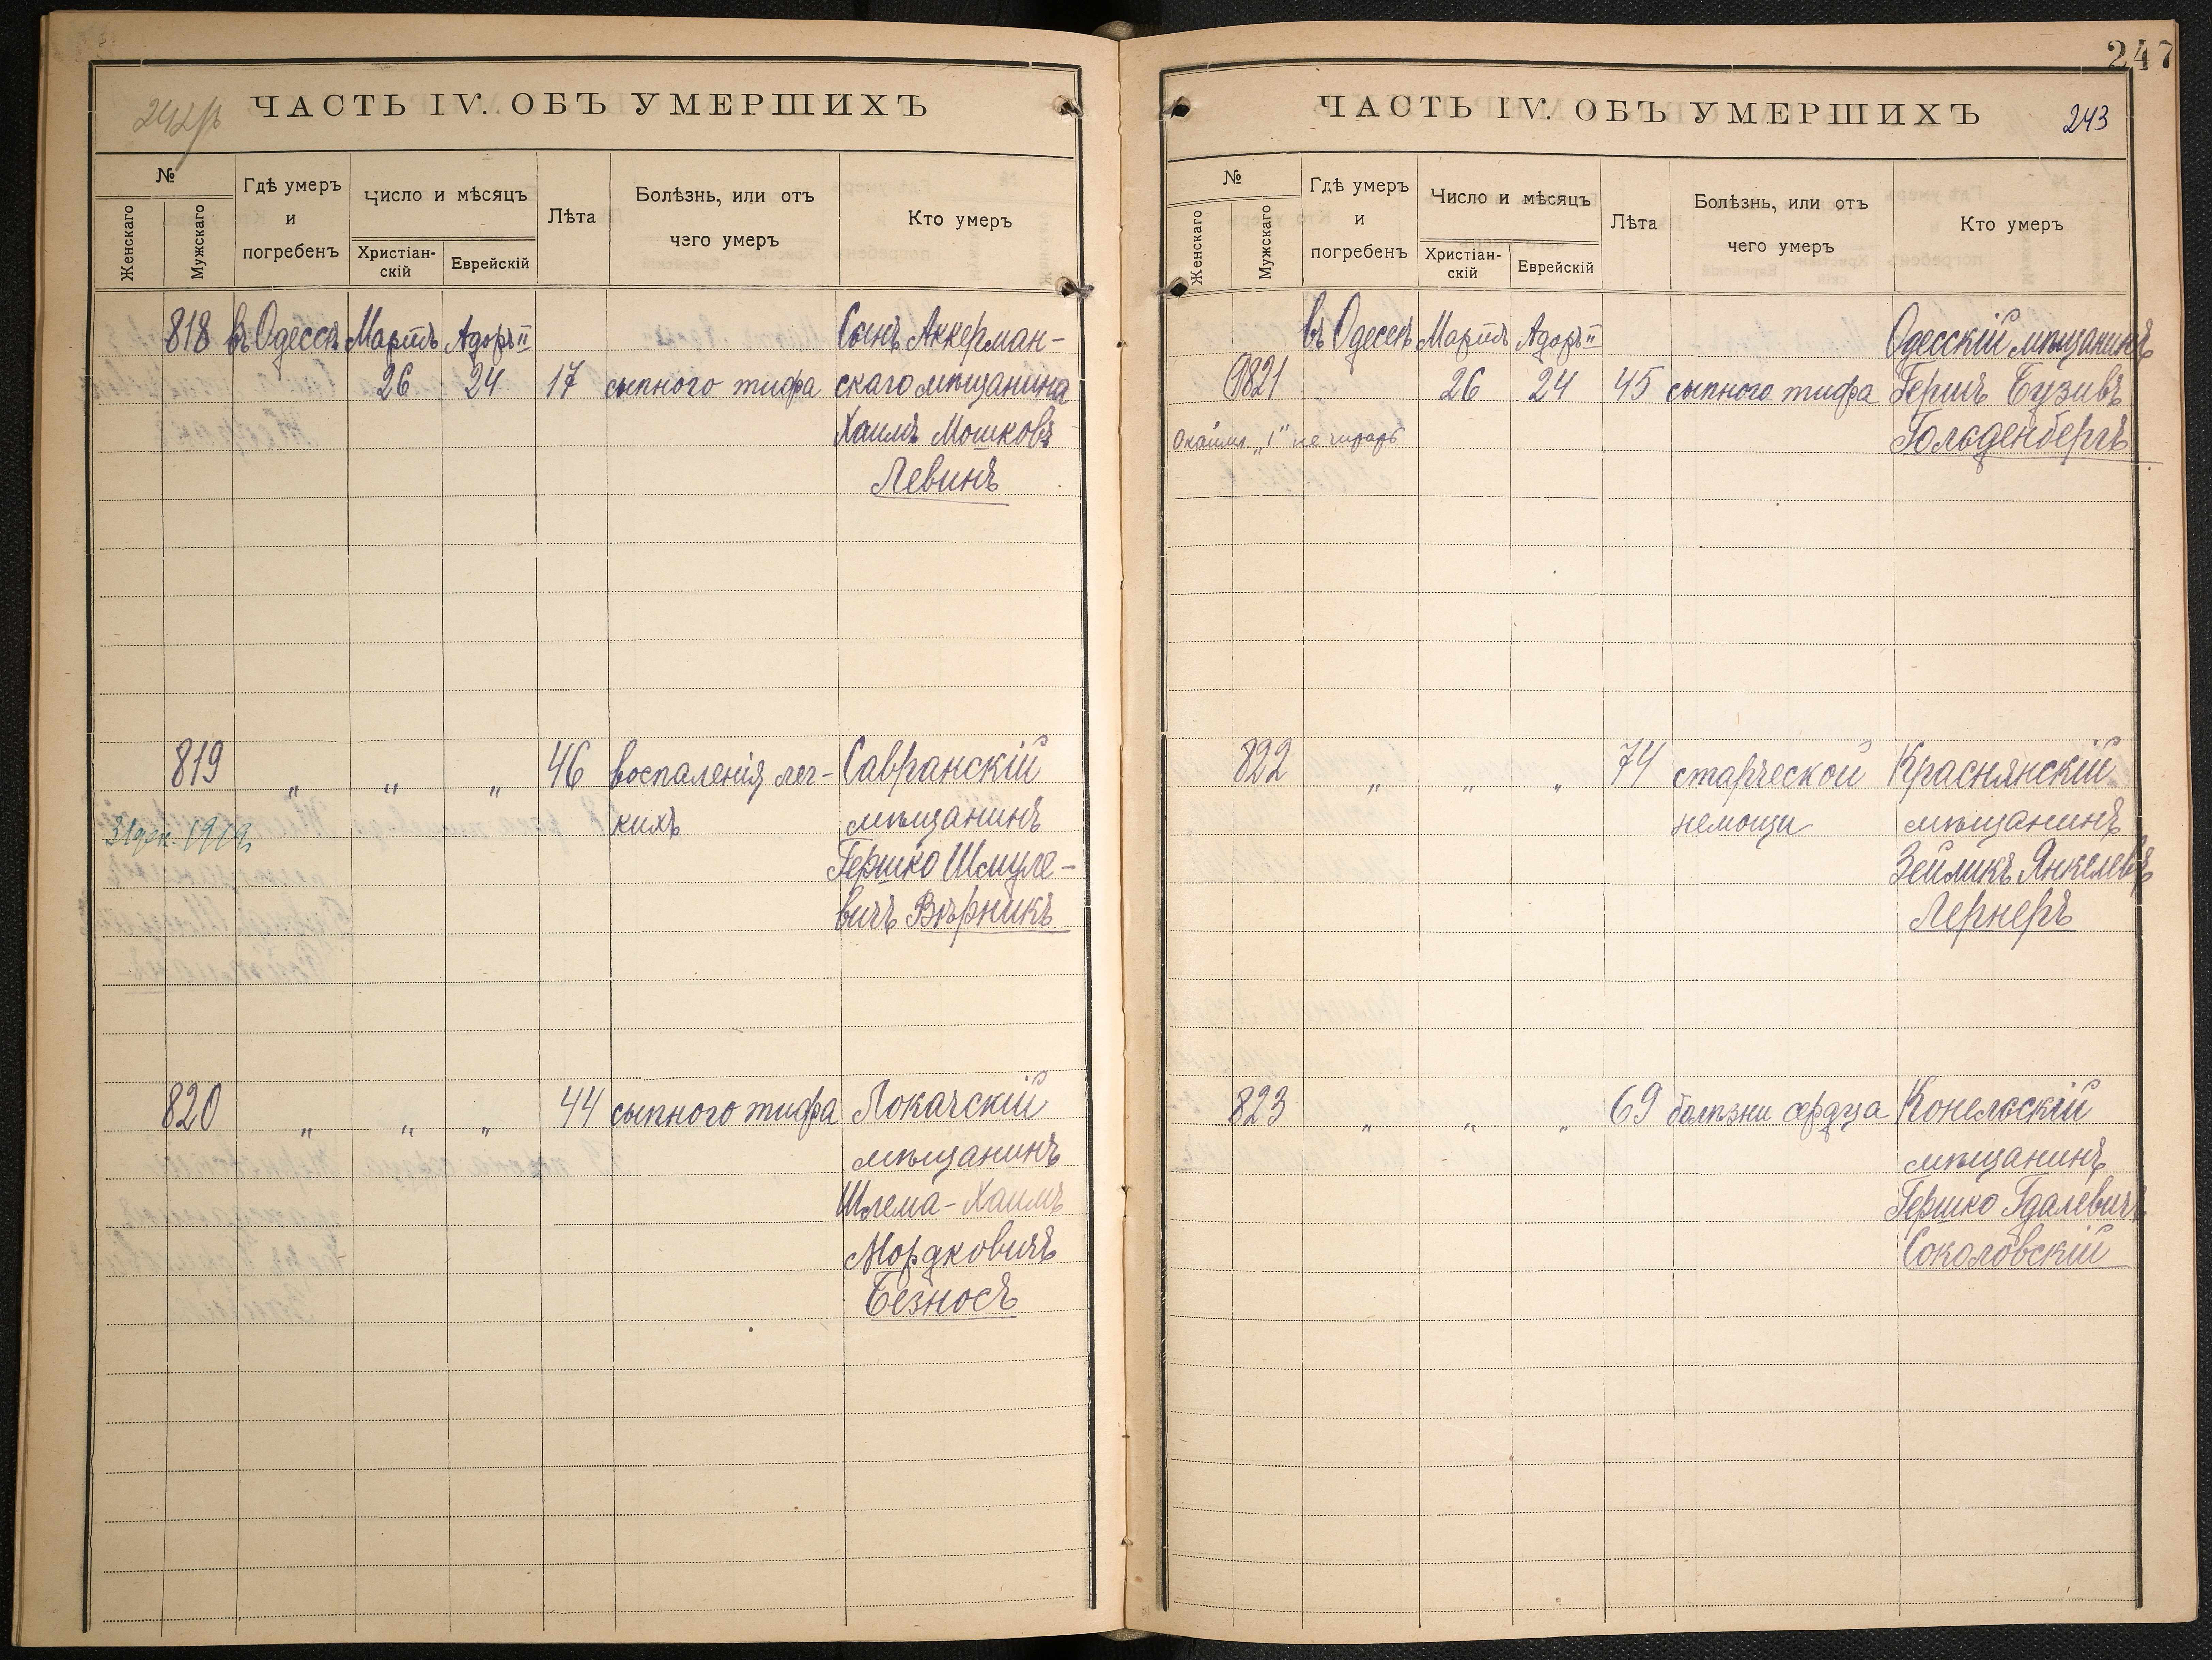 242 об
ЧАСТЬ IV. ОБЪ УМЕРШИХЪ
№
Женскаго
Мужскаго
Гдѣ умеръ
и
погребенъ
Число и мѣсяцъ
Христіан-
скій
Еврейскій
Лѣта
Болѣзнь, или отъ
чего умеръ
Кто умеръ
818 въ Одессѣ Мартъ Адоръ II Сынъ Аккерман-
26 24 17 сыпного тифа скаго мѣщанина
Хаимъ Мошковъ
Левинъ
819 " " " 46 воспаленія лег- Савранскій
кихъ мѣщанинъ
1919
Гершко Шмуле-
вичъ Вѣрникъ
820 " " " 44 сыпного тифа Локачскій
мѣщанинъ
Шлема-Хаимъ
Мордковичъ
Безносъ
247
ЧАСТЬ IV. ОБЪ УМЕРШИХЪ
243
№
Женскаго
Мужскаго
Гдѣ умеръ
и
погребенъ
Число и мѣсяцъ
Христіан-
скій
Еврейскій
Лѣта
Болѣзнь, или отъ
чего умеръ
Кто умеръ
въ Одессѣ Мартъ Адоръ II Одесскій мѣщанинъ
821 26 24 45 сыпного тифа Гершъ Бузивъ
"1" не читать Гольденбергъ
822 " " " 74 старческой Краснянскій
немощи мѣщанинъ
Зейликъ Янкелевъ
Лернеръ
823 " " " 69 болѣзни сердца Конельскій
мѣщанинъ
Гершко Гдалевичъ
Соколовскій